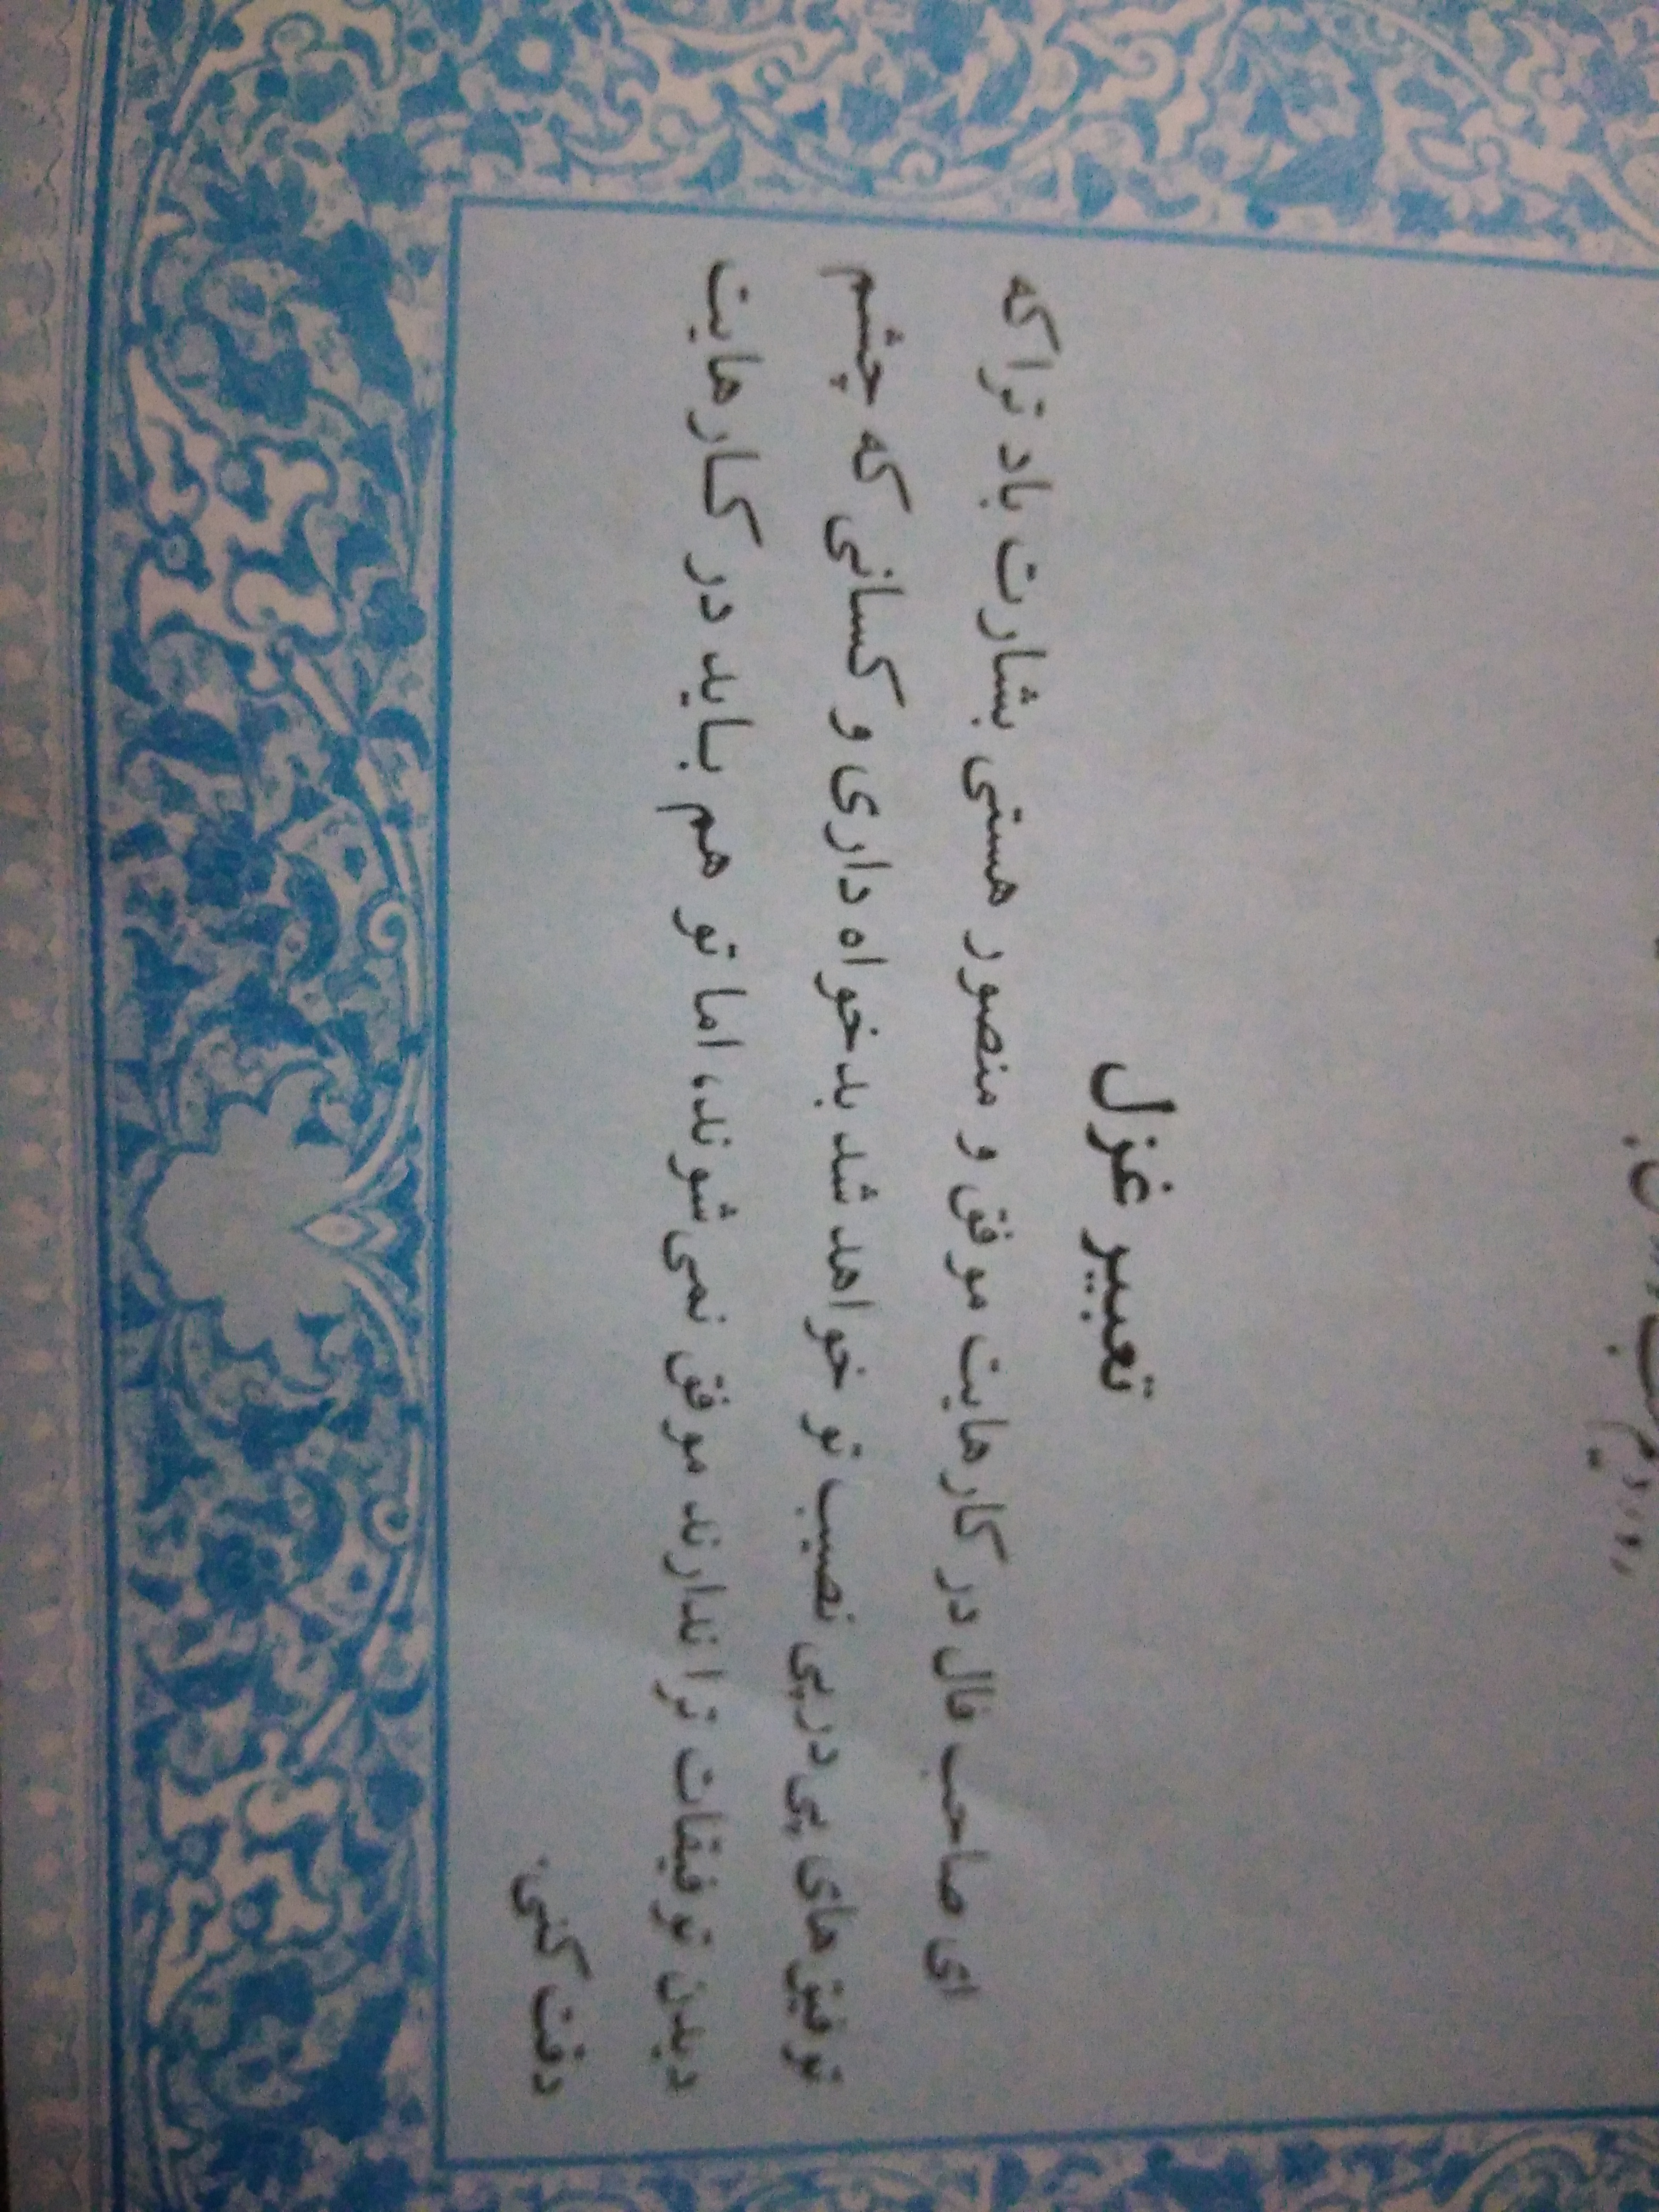 تعبیر غزل
ای صاحب فال در کارهایت موفق و منصور هستی بشارت باد ترا که
توفیق‌های پی‌درپی نصیب تو خواهد شد بدخواه داری و کسانی که چشم
دیدن توفیقات ترا ندارند موفق نمی‌شوند، اما تو هم باید در کارهایت
دقت کنی.